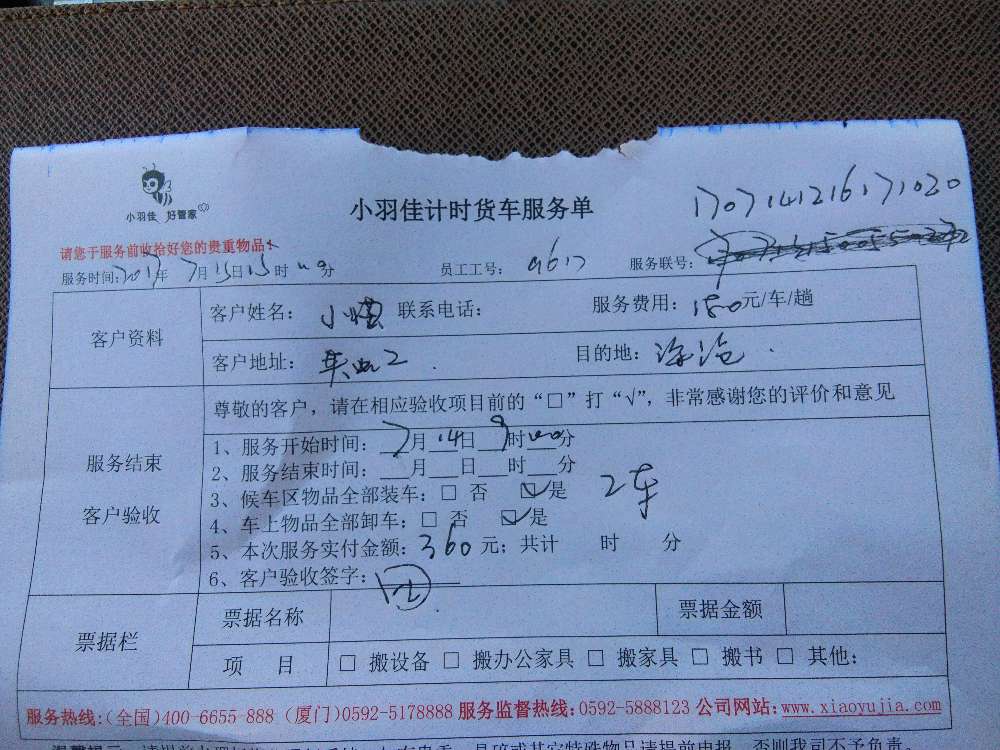 小羽佳 好管家
小羽佳计时货车服务单
1707141216171030
请您于服务前收拾好您的贵重物品!
服务时间:2017年7月15日15时00分 员工工号: 9617 服务联号:
客户资料
客户姓名: 小 联系电话: 服务费用: 180元/车/趟
客户地址: 2 目的地: 海沧
尊敬的客户，请在相应验收项目前的“□”打“√”，非常感谢您的评价和意见
服务结束
客户验收
1、服务开始时间: 7月14日9时00分
2、服务结束时间: __月__日__时__分
3、候车区物品全部装车: □ 否 ☑是 2车
4、车上物品全部卸车: □ 否 ☑是
5、本次服务实付金额: 360元; 共计 时 分
6、客户验收签字:
票据栏
票据名称 票据金额
项 目 □ 搬设备 □ 搬办公家具 □ 搬家具 □ 搬书 □ 其他:
服务热线:(全国)400-6655-888 (厦门)0592-5178888 服务监督热线:0592-5888123 公司网站:www.xiaoyujia.com